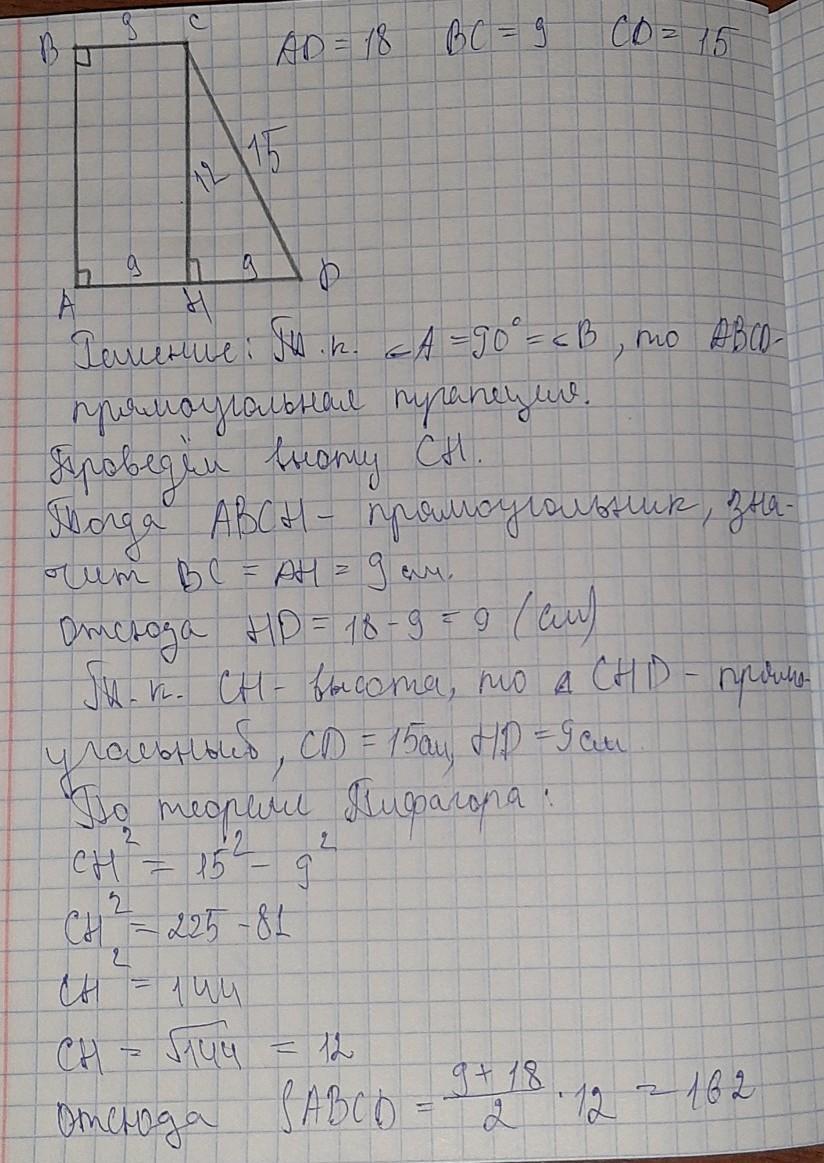 B 9 C AD = 18 BC = 9 CD = 15
12 15
9 9
A H D
Решение: Т.к. ∠A = 90° = ∠B, то ABCD -
прямоугольная трапеция.
Проведём высоту CH.
Тогда ABCH - прямоугольник, зна-
чит BC = AH = 9 см.
Отсюда HD = 18 - 9 = 9 (см)
Т.к. CH - высота, то △ CHD - прямо-
угольный, CD = 15 см, HD = 9 см
По теореме Пифагора:
CH² = 15² - 9²
CH² = 225 - 81
CH² = 144
CH = √144 = 12
Отсюда SABCD = (9 + 18)/2 · 12 = 162